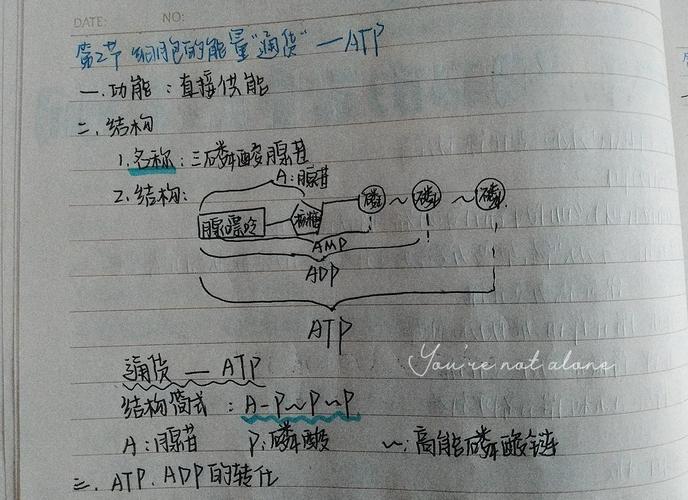 DATE: NO:
第2节 细胞的能量"通货" —ATP
一.功能:直接供能
二.结构
1.名称:三磷酸腺苷
A:腺苷
2.结构:
腺嘌呤 核糖 磷 ~ 磷 ~ 磷
AMP
ADP
ATP
You're not alone
通货 — ATP
结构简式:A-P~P~P
A:腺苷 P:磷酸 ~:高能磷酸键
三.ATP.ADP的转化